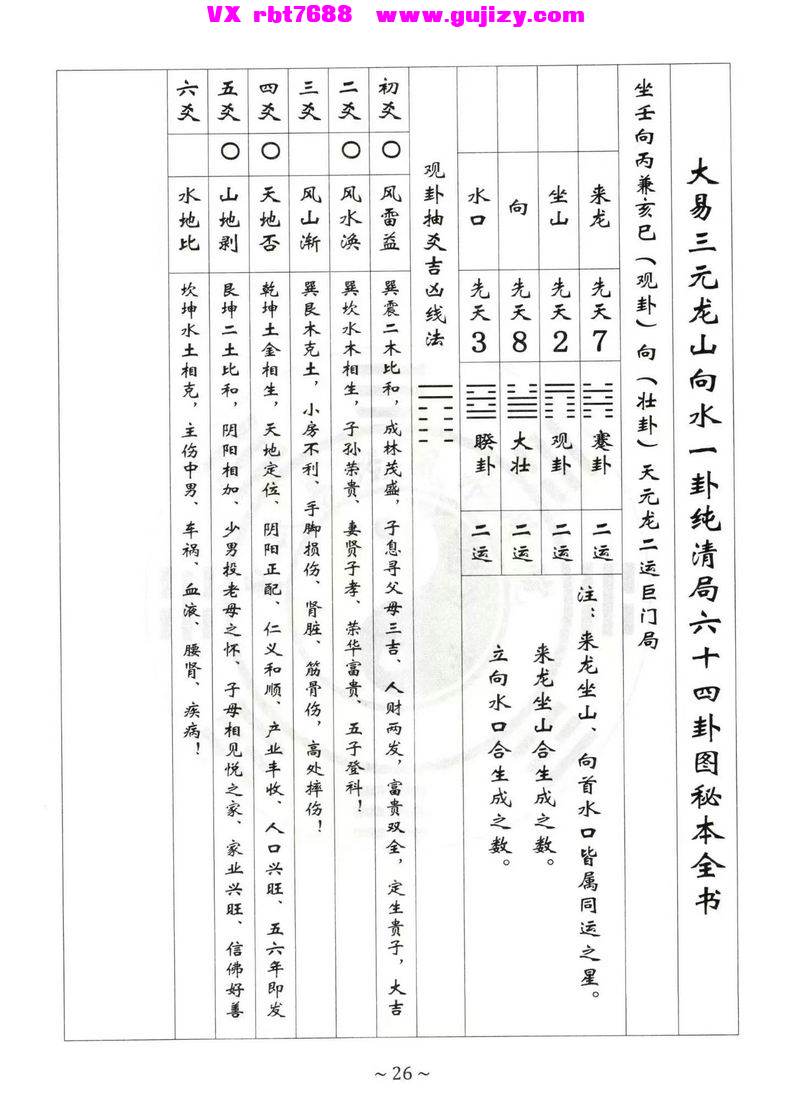 VX rbt7688 www.gujizy.com
大易三元龙山向水一卦纯清局六十四卦图秘本全书
坐壬向丙兼亥巳（观卦）向（壮卦）天元龙二运巨门局
来龙 先天7 蹇卦 二运
坐山 先天2 观卦 二运
向 先天8 大壮 二运
水口 先天3 睽卦 二运
注：来龙坐山、向首水口皆属同运之星。
来龙坐山合生成之数。
立向水口合生成之数。
观卦抽爻吉凶线法
初爻 〇 风雷益 巽震二木比和，成林茂盛，子息寻父母三吉、人财两发，富贵双全，定生贵子，大吉
二爻 〇 风水涣 巽坎水木相生，子孙荣贵、妻贤子孝、荣华富贵、五子登科！
三爻 风山渐 巽艮木克土，小房不利、手脚损伤、肾脏、筋骨伤，高处摔伤！
四爻 〇 天地否 乾坤土金相生，天地定位、阴阳正配、仁义和顺、产业丰收、人口兴旺、五六年即发
五爻 〇 山地剥 艮坤二土比和，阴阳相加、少男投老母之怀、子母相见悦之家、家业兴旺、信佛好善
六爻 水地比 坎坤水土相克，主伤中男、车祸、血液、腰肾、疾病！
~ 26 ~